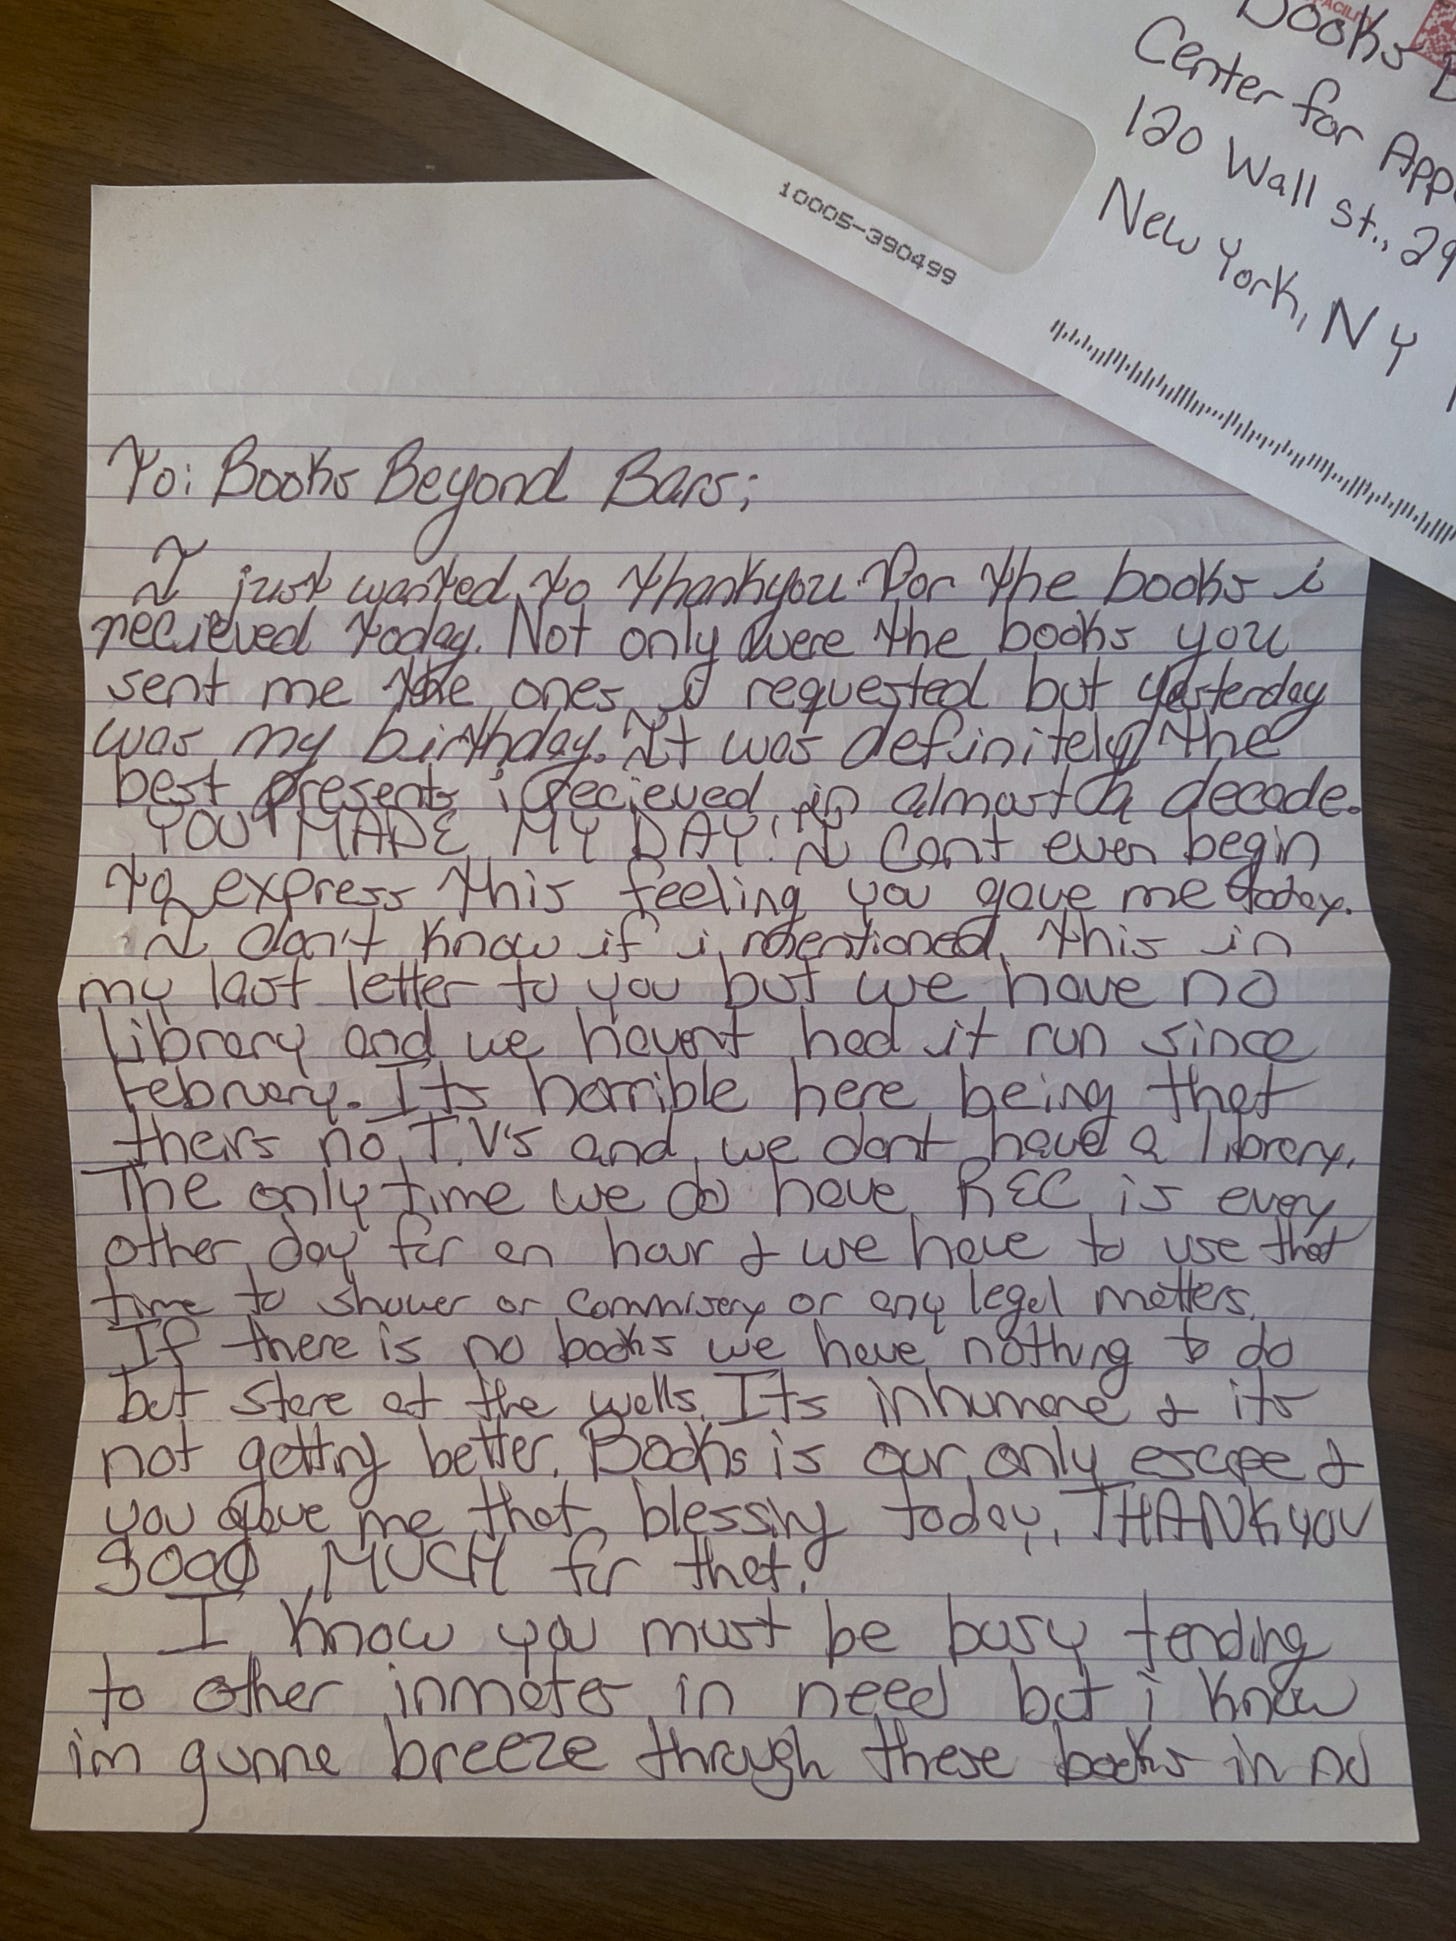 Books
Center for App
120 Wall St., 29
New York, NY
FACILITY
10005-390499
To: Books Beyond Bars;
I just wanted to thankyou for the books i
recieved today. Not only were the books you
sent me the ones i requested but yesterday
was my birthday. It was definitely the
best presents i recieved in almost a decade.
YOU MADE MY DAY! I cant even begin
to express this feeling you gave me today.
I don't know if i mentioned this in
my last letter to you but we have no
library and we havent had it run since
February. Its horrible here being that
theirs no T.V's and we dont have a library.
The only time we do have REC is every
other day for an hour & we have to use that
time to shower or commisery or any legal matters.
If there is no books we have nothing to do
but stare at the walls. Its inhumane & its
not getting better. Books is our only escape &
you gave me that blessing today, THANK YOU
SOOO MUCH for that.
I know you must be busy tending
to other inmates in need but i know
im gunna breeze through these books in no